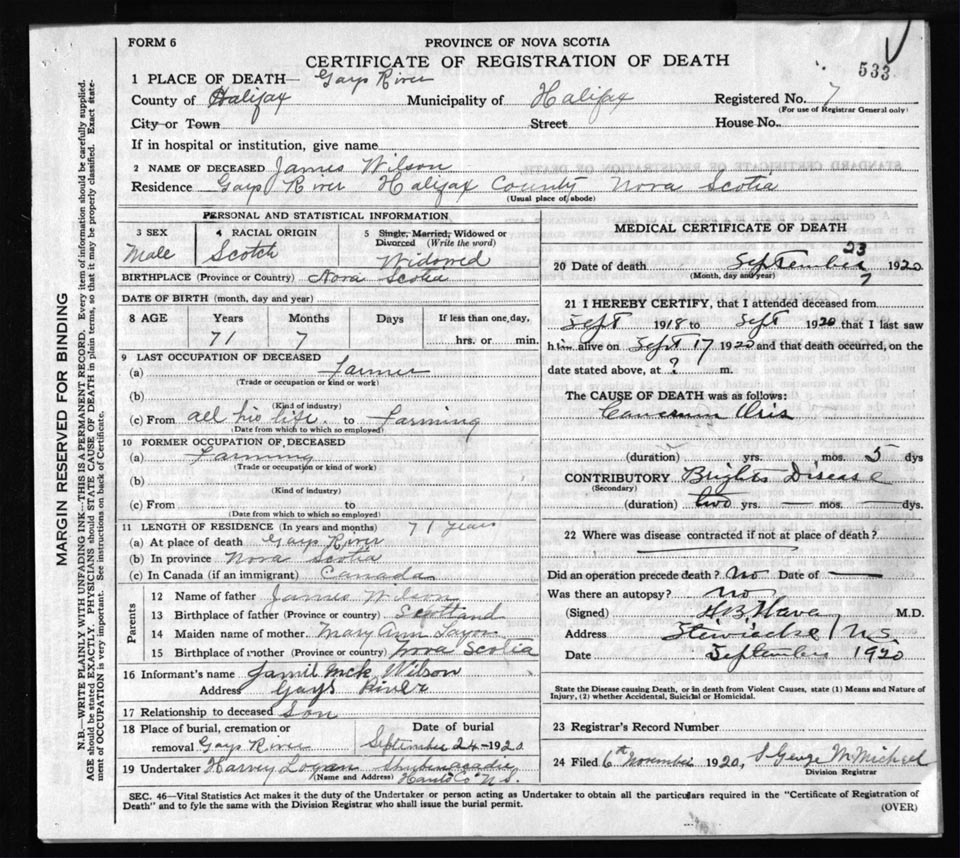 FORM 6
PROVINCE OF NOVA SCOTIA
CERTIFICATE OF REGISTRATION OF DEATH
533
1 PLACE OF DEATH— Gays River
County of Halifax Municipality of Halifax Registered No. 7
(For use of Registrar General only)
City or Town Street House No.
If in hospital or institution, give name
2 NAME OF DECEASED James Wilson
Residence Gays River Halifax County Nova Scotia
(Usual place of abode)
PERSONAL AND STATISTICAL INFORMATION
3 SEX Male
4 RACIAL ORIGIN Scotch
5 Single, Married, Widowed or Divorced (Write the word) Widowed
BIRTHPLACE (Province or Country) Nova Scotia
DATE OF BIRTH (month, day and year)
8 AGE Years Months Days If less than one day,
71 7 hrs. or min.
9 LAST OCCUPATION OF DECEASED
(a) Farmer
(Trade or occupation or kind or work)
(b)
(Kind of industry)
(c) From all his life. to Farming
(Date from which to which so employed)
10 FORMER OCCUPATION OF DECEASED
(a) Farming
(Trade or occupation or kind of work)
(b)
(Kind of industry)
(c) From to
(Date from which to which so employed)
11 LENGTH OF RESIDENCE (In years and months) 71 years
(a) At place of death Gays River
(b) In province Nova Scotia
(c) In Canada (if an immigrant) Canada
Parents
12 Name of father James Wilson
13 Birthplace of father (Province or country) Scotland
14 Maiden name of mother Mary Ann
15 Birthplace of mother (Province or country) Nova Scotia
16 Informant's name Wilson
Address Gays River
17 Relationship to deceased Son
18 Place of burial, cremation or removal Gays River
Date of burial
September 24-1920
19 Undertaker Harvey Logan Shubenacadie
(Name and Address) Hants Co N.S.
MEDICAL CERTIFICATE OF DEATH
23
20 Date of death September 1920
(Month, day and year) ?
21 I HEREBY CERTIFY, that I attended deceased from
Sept 1918 to Sept 1920 that I last saw
him alive on Sept 17 1920 and that death occurred, on the
date stated above, at ? m.
The CAUSE OF DEATH was as follows:
(duration) yrs. mos. 5 dys
CONTRIBUTORY Brights Disease
(Secondary)
(duration) two yrs. — mos. — dys.
22 Where was disease contracted if not at place of death?
Did an operation precede death? No Date of —
Was there an autopsy? no
(Signed) M.D.
Address Stewiacke N.S.
Date September 1920
State the Disease causing Death, or in death from Violent Causes, state (1) Means and Nature of
Injury, (2) whether Accidental, Suicidal or Homicidal.
23 Registrar's Record Number
24 Filed 6th November 1920, George McMichael
Division Registrar
SEC. 46—Vital Statistics Act makes it the duty of the Undertaker or person acting as Undertaker to obtain all the particulars required in the "Certificate of Registration of
Death" and to fyle the same with the Division Registrar who shall issue the burial permit.
(OVER)
MARGIN RESERVED FOR BINDING
N.B.—WRITE PLAINLY WITH UNFADING INK—THIS IS A PERMANENT RECORD. Every item of information should be carefully supplied.
AGE should be stated EXACTLY. PHYSICIANS should STATE CAUSE OF DEATH in plain terms, so that it may be properly classified. Exact state-
ment of OCCUPATION is very important. See instructions on back of Certificate.